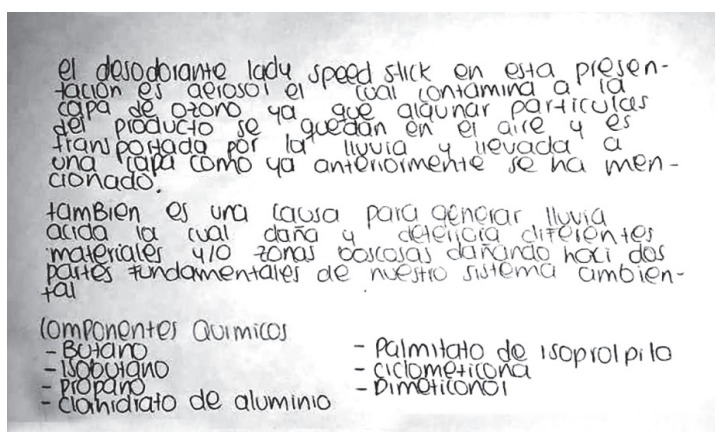 el desodorante lady speed stick en esta presen-
tación es aerosol el cual contamina a la
capa de ozono ya que algunar particulas
del producto se quedan en el aire y es
transportada por la lluvia y llevada a
una capa como ya anteriormente se ha men-
cionado.
tambien es una causa para generar lluvia
acida la cual daña y deterijcia diferentes
materiales y/o zonas boscosas dañando haci dos
partes fundamentales de nuestro sistema ambien-
tal
Componentes Quimicos
- Butano
- Isobutano
- propano
- Clorhidrato de aluminio
- Palmitato de isoprolpilo
- ciclometicona
- Dimeticonol